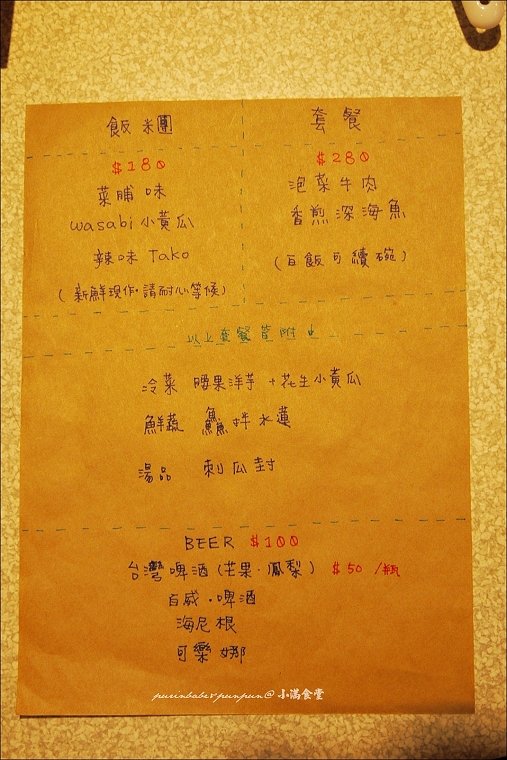 飯 米團
$180
菜脯 味
wasabi 小黃瓜
辣味 Tako
( 新鮮現作·請耐心等候 )
套 餐
$280
泡菜牛肉
香煎深海魚
( 白飯可續碗 )
以上套餐皆附上
冷菜 腰果洋芋 + 花生小黃瓜
鮮蔬 鱻拌水蓮
湯品 刺瓜封
BEER $100
台灣啤酒 (芒果·鳳梨) $50 /瓶
百威·啤酒
海尼根
可樂娜
purinbabe&punpun@小滿食堂